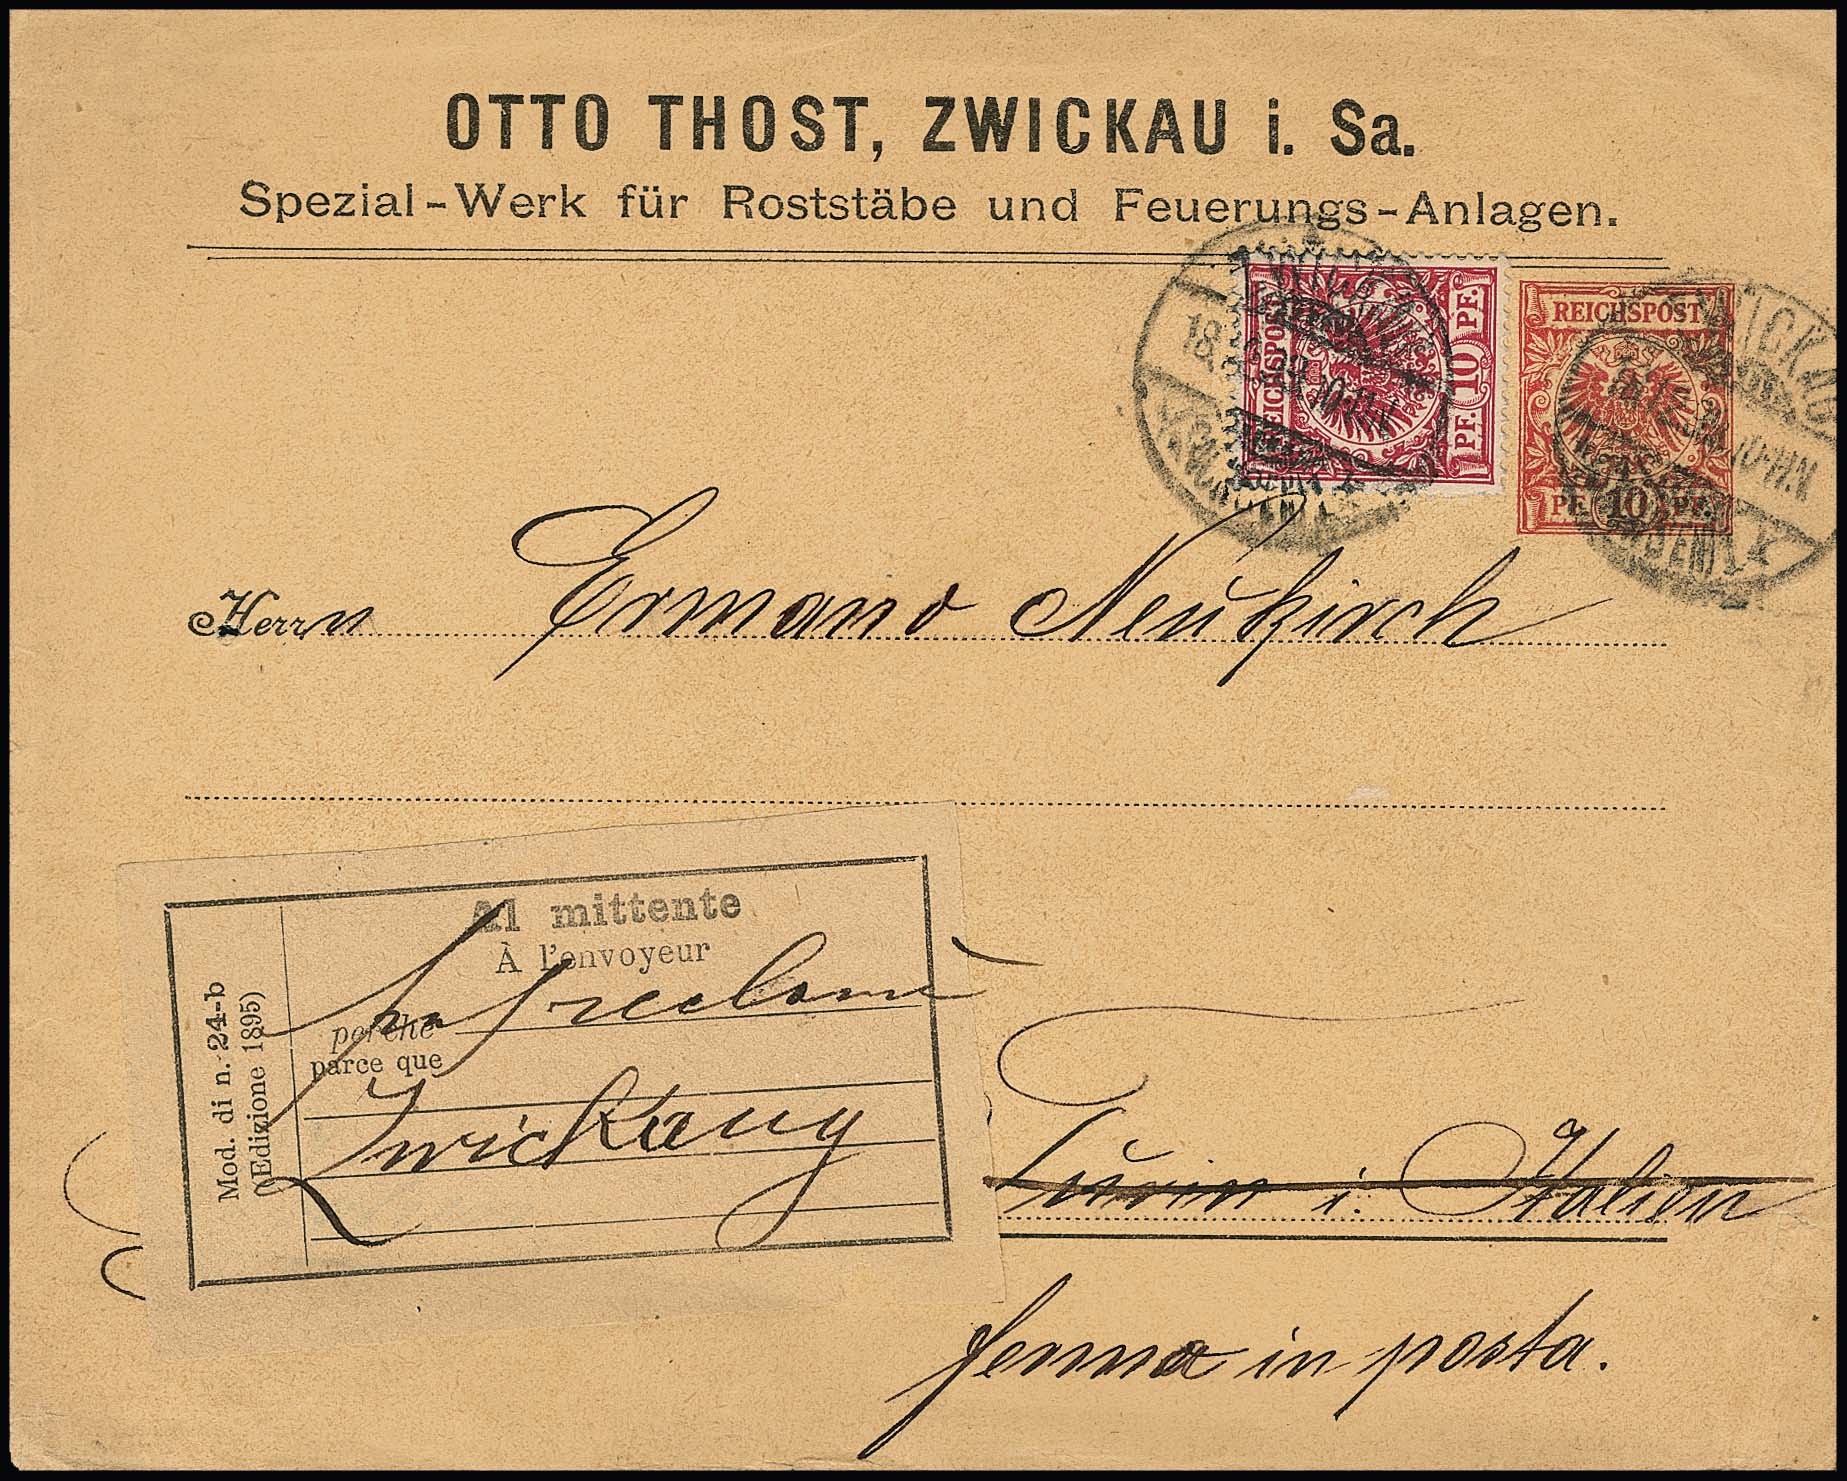 OTTO THOST, ZWICKAU i. Sa.
Spezial-Werk für Roststäbe und Feuerungs-Anlagen.
REICHSPOST
PF. 10 PF.
REICHSPOST
PF. 10 PF.
ZWICKAU
10-11V.
Herrn Ermano Neukirch
Al mittente
À l'envoyeur
perchè
parce que
Zwickau
Mod. di n. 24-b
(Edizione 1895)
Turin i. Italien
ferma in posta.